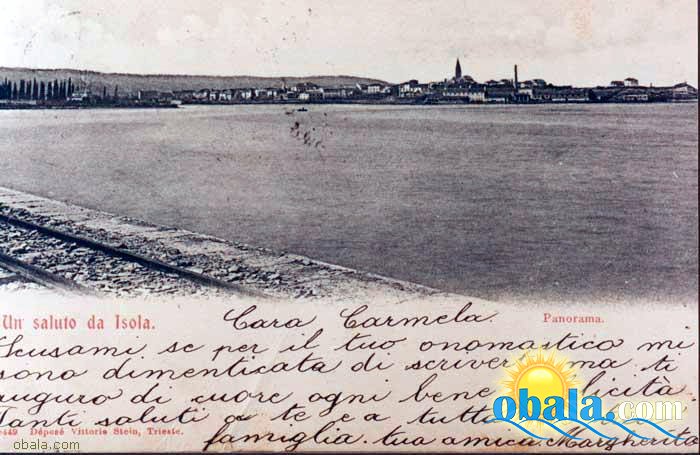 Un saluto da Isola.
Panorama.
Cara Carmela.
Scusami se per il tuo onomastico mi
sono dimenticata di scriverti ma ti
auguro di cuore ogni bene felicità.
Tanti saluti a te e a tutta
famiglia. tua amica Margherita
449 Déposé Vittorio Stein, Trieste.
obala.com
obala.com